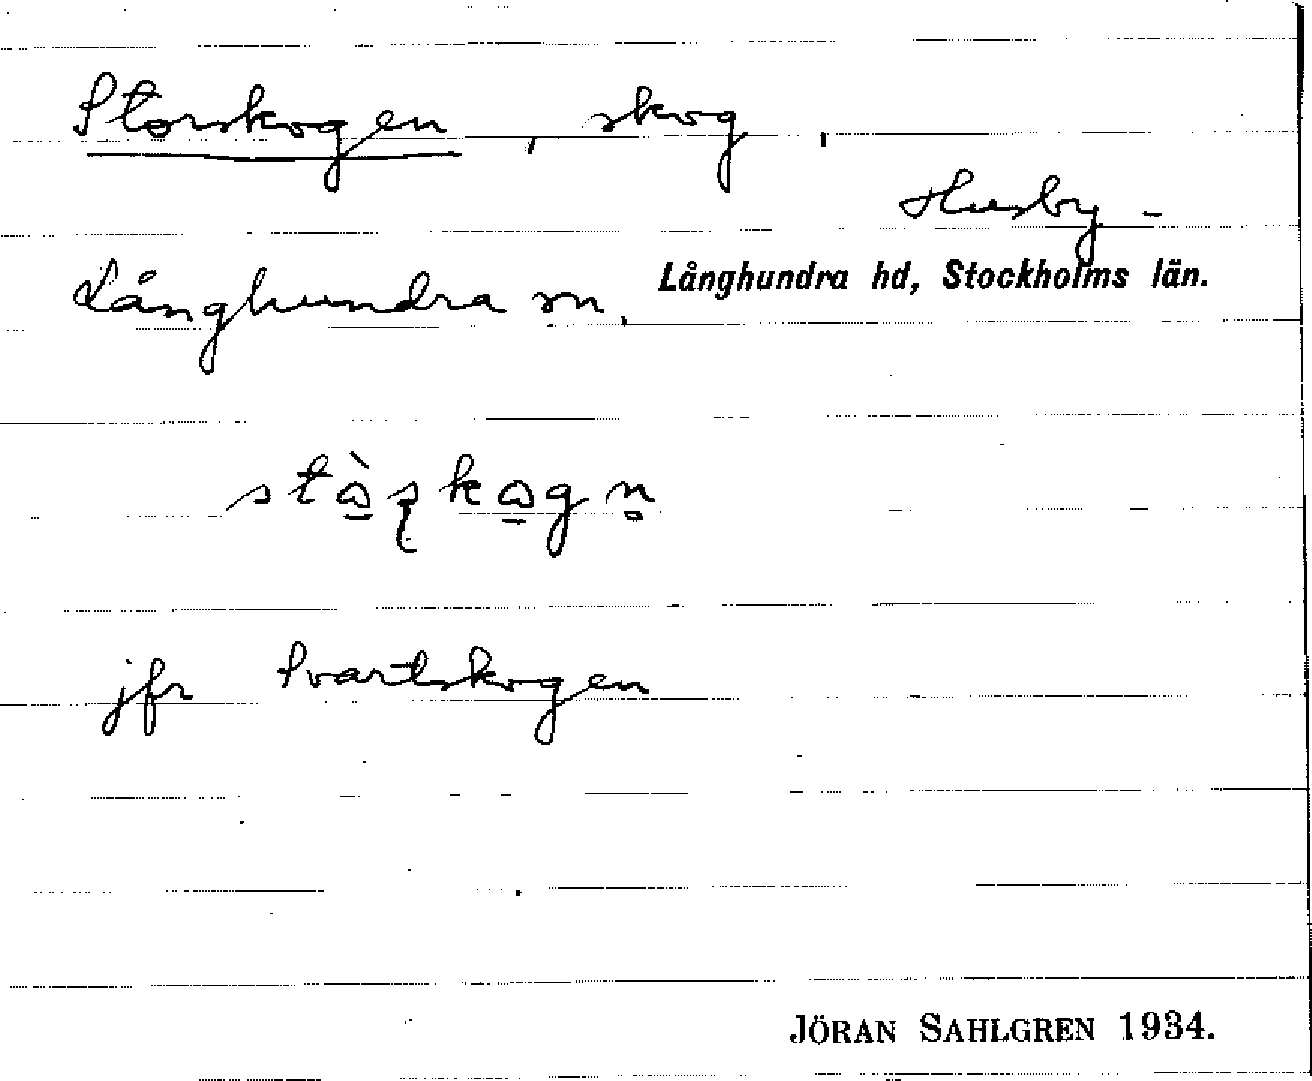 Storskogen, skog,
Husby-
Långhundra sn,
Långhundra hd, Stockholms län.
jfr Svartskogen
JÖRAN SAHLGREN 1934.